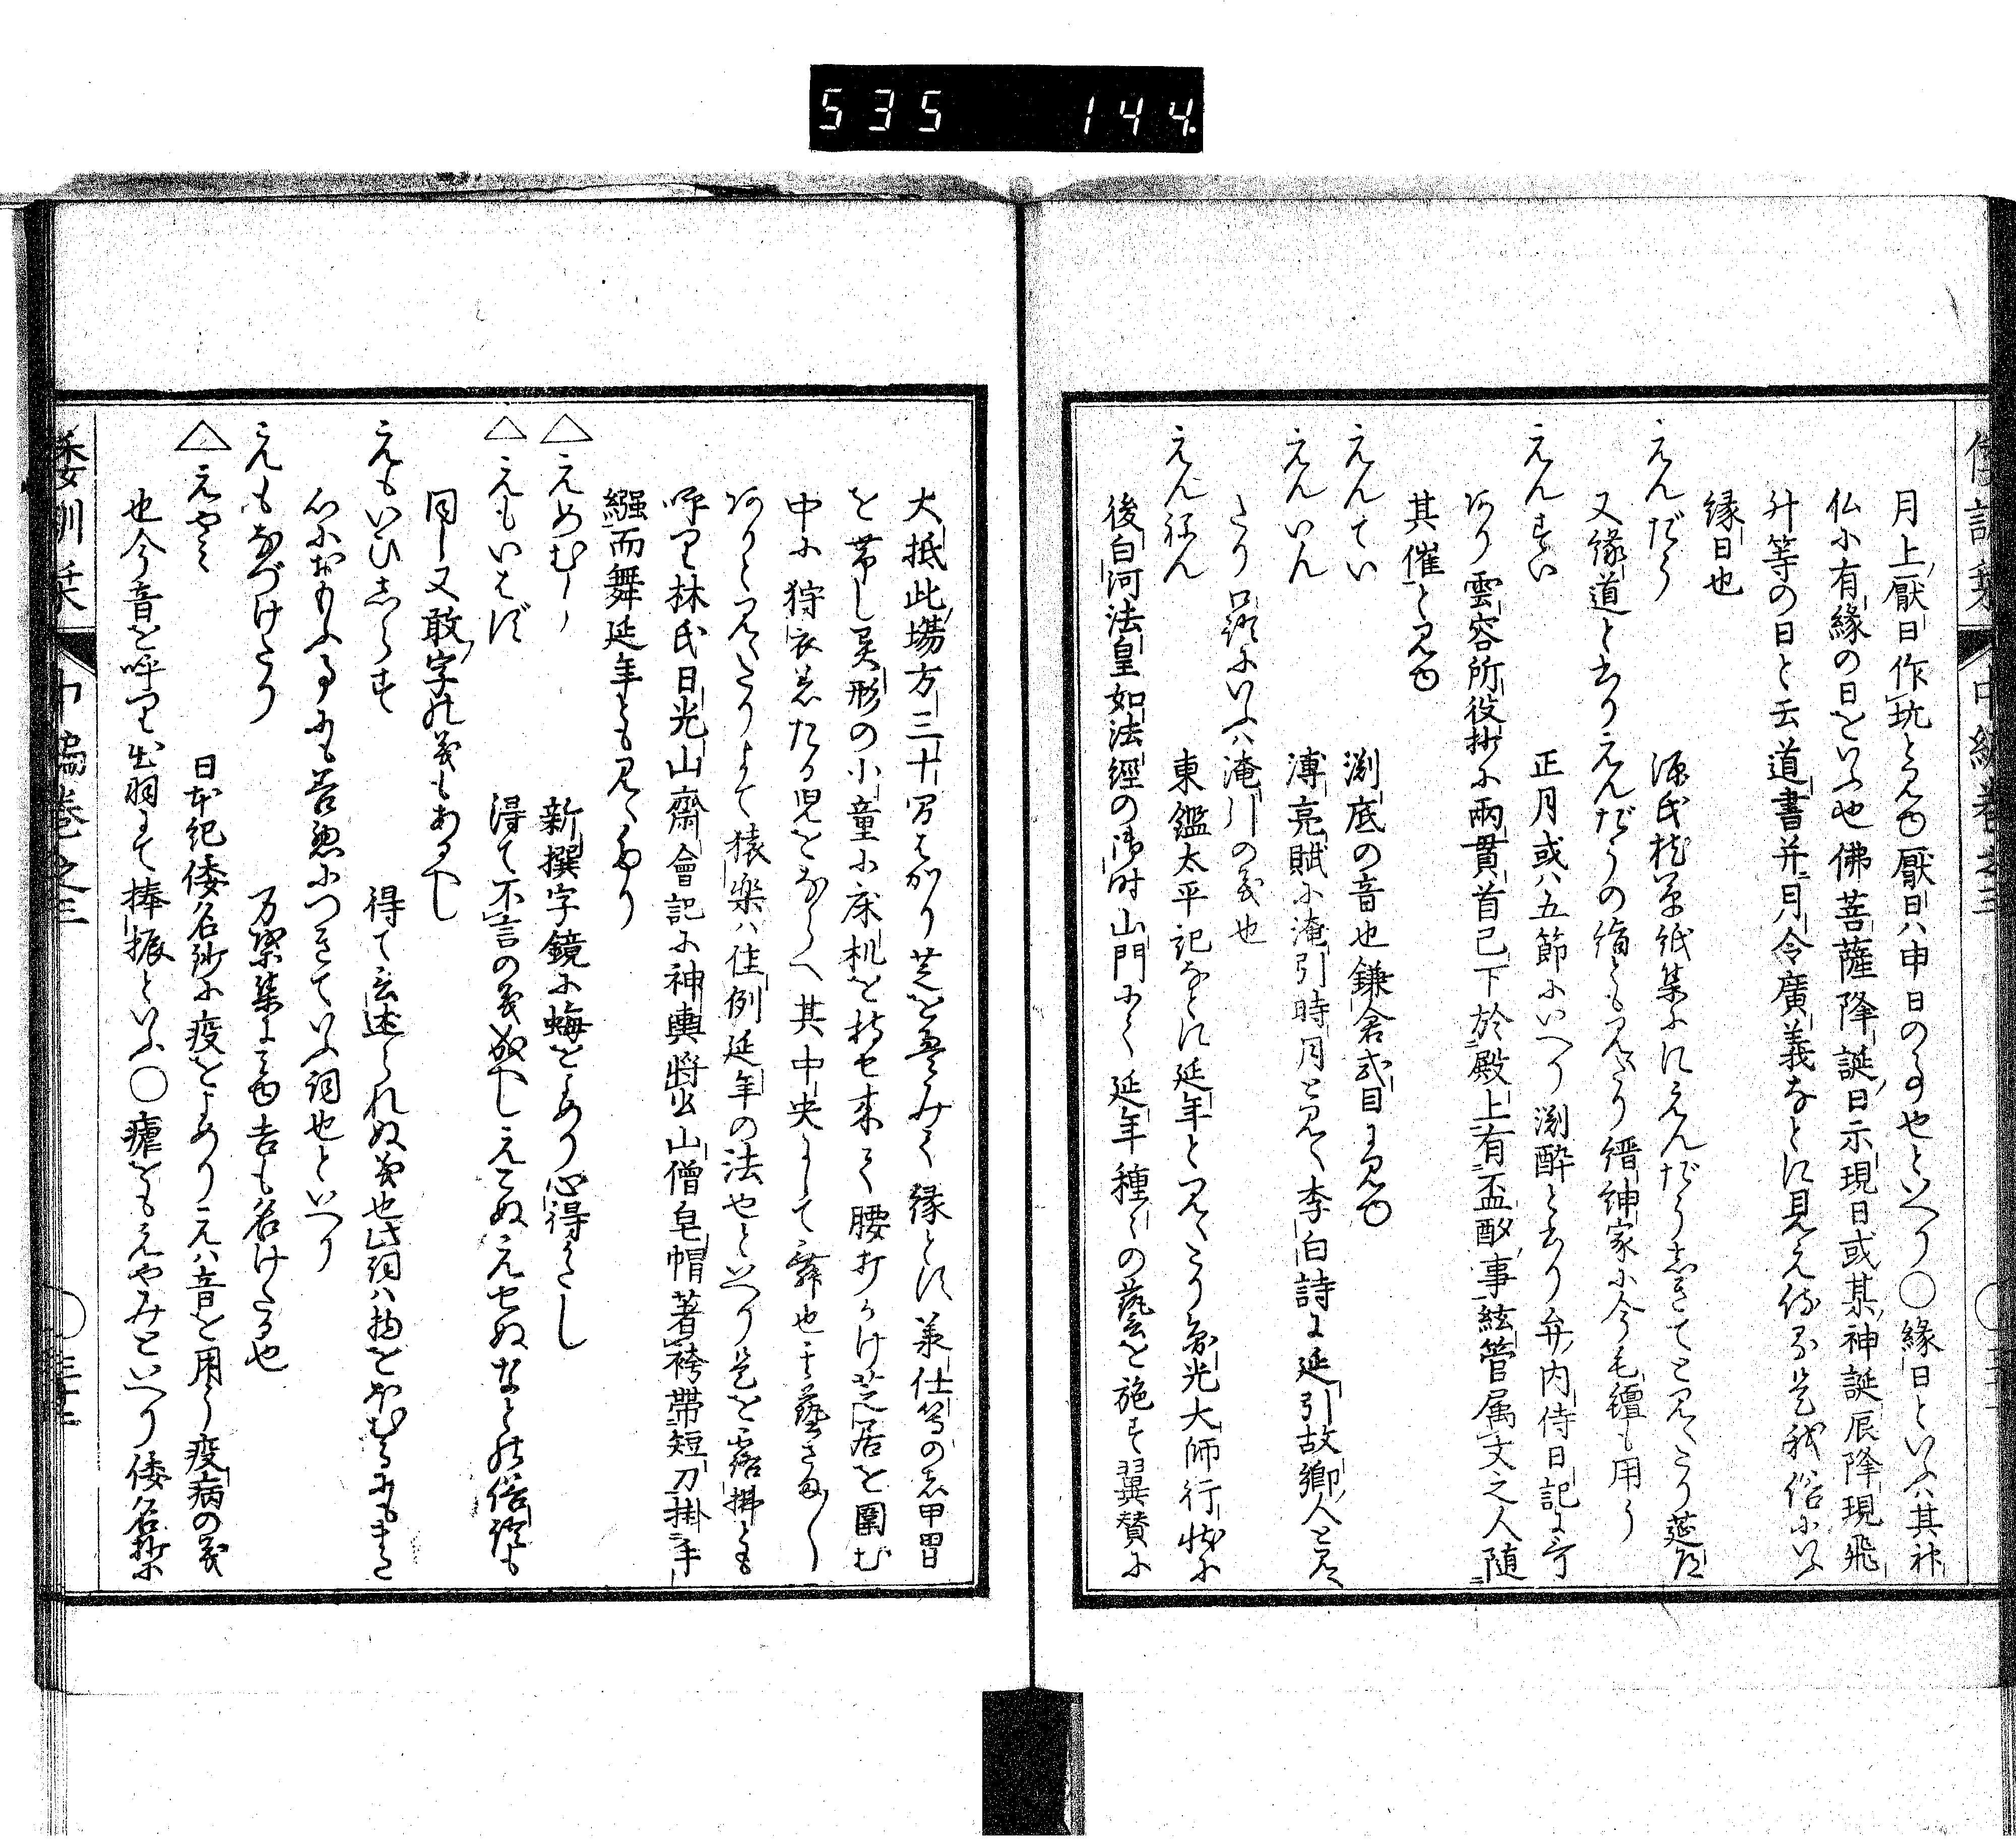 535 144
倭訓栞 中編巻之三
月上厭日作坑と見ゆ厭日ハ申日の事也といへり〇縁日といふハ其神
仏に有縁の日をいふ也佛菩薩降誕日示現日或某神誕辰降現飛
升等の日と云道書并月令廣義なとに見え侍る是我俗にいふ
縁日也
えんだう 源氏枕草紙集にえんだうしきてと見えたり莚道
又縁道とかけりえんだうの絹とも見えたり縉紳家に今毛氈も用う
えんすい 正月或ハ五節にいへり淵酔とかけり弁内侍日記に
あり雲容所役抄に兩貫首已下於殿上有盃酌事絃管属文之人随
其催と見ゆ
えんてい 淵底の音也鎌倉式目に見ゆ
えんいん 溥亮賦に淹引時月と見え李白詩に延引故郷人と見え
たり呂覧にいふハ淹引の義也
えんねん 東鑑太平記なとに延年と見えたり圓光大師行状に
後白河法皇如法經の御時山門にて延年種々の藝を施す翼賛に
大抵此場方三十間はかり芝を畳みて縁とす兼仕等の者甲冑
を帯し異形の小童に床机を持せ来て腰打かけ芝居を圍む
中に狩衣着たる児をならへ其中央にして舞也其藝さま〳〵
ありと見えたりよて猿楽ハ佳例延年の法也といへり是を露拂とも
呼り林氏日光山齋會記に神輿將出山僧皂帽著袴帶短刀掛手
繦而舞延年とも見えたり
△えめむし 新撰字鏡に蛕をよめり心得かたし
△えもいはず 得て不言の義成へしえこぬえせぬなとの俗語も
同し又敢字の義もあるへし
えもいひしらす 得て言述られぬ義也此詞ハ物をほむるにもまた
心におもふ事にも善悪につきていふ詞也といへり
えもなづけたり 万葉集に見ゆ吉も名けたる也
△えやみ 日本紀倭名鈔に疫をよめりえハ音を用う疫病の義
也今音を呼り出羽にて捧振といふ〇瘧をもえやみといへり倭名抄に
倭訓栞 中編巻之三